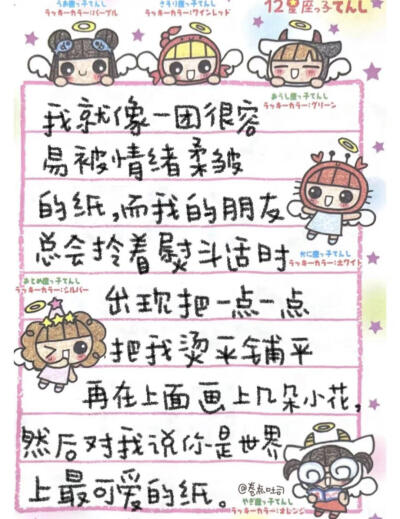 12星座っ子てんし
うお座っ子てんし
ラッキーカラー:パープル
さそり座っ子てんし
ラッキーカラー:ワインレッド
おうし座っ子てんし
ラッキーカラー:グリーン
我就像一团很容
易被情绪柔皱
的纸,而我的朋友
总会拎着熨斗适时
かに座っ子てんし
ラッキーカラー:ホワイト
おとめ座っ子てんし
ラッキーカラー:シルバー
出现把一点一点
把我烫平铺平
再在上面画上几朵小花,
然后对我说你是世界
上最可爱的纸。
@卷点吐司
やぎ座っ子てんし
ラッキーカラー:オレンジ